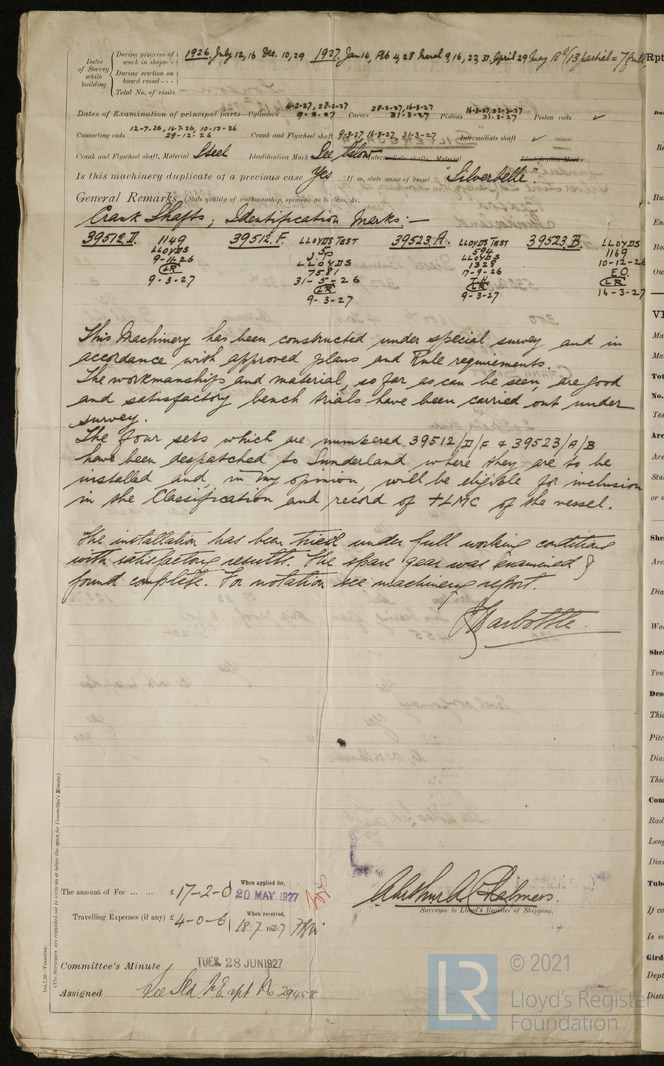 Dates of Survey while building
During progress of work in shops - - 1926, July 12, 16 Dec. 10, 29 1927. Jan 14, Feb 4, 28 March 9, 16, 23 April 29 May
During erection on board vessel - - -
Total No. of visits
Dates of Examination of principal parts—Cylinders 4-2-27, 28-2-27 9-3-27 Covers 28-2-27, 16-3-27 31-3-27 Pistons 16-3-27, 23-3-27 31-3-27 Piston rods ✓
Connecting rods 12-7-26, 16-7-26, 10-12-26 29-12-26 Crank and Flywheel shaft 9-3-27 16-3-27 31-3-27 Intermediate shaft ✓
Crank and Flywheel shaft, Material Steel Identification Mark See below Intermediate shafts, Material Identification Marks
Is this machinery duplicate of a previous case Yes If so, state name of vessel "Silverbelle"
General Remarks (State quality of workmanship, opinions as to class, &c.
Crank Shafts; Identification Marks:—
39512.D. 1149 39512.F. LLOYDS TEST 39523.A. LLOYDS TEST 39523.B. LLOYDS
LLOYDS 594 1169
9-11-26 LLOYDS LLOYDS 10-12-26
LR 7581 1328 E.O
9-3-27 31-5-26 17-9-26 LR
LR LR 16-3-27
9-3-27 9-3-27
This Machinery has been constructed under special survey and in
accordance with approved plans and Rule requirments.
The workmanships and material, so far as can be seen, are good
and satisfactory bench trials have been carried out under
survey.
The four sets which are numbered 39512/D/F & 39523/A/B
have been despatched to Sunderland where they are to be
installed and in my opinion, will be eligible for inclusion
in the Classification and record of +LMC of the vessel.
The installation has been tried under full working conditions
with satisfactory results. The spare gear was examined &
found complete. For notation see machinery report.
Harbottle.
The amount of Fee ... ... £ 17-2-0 When applied for, 20 MAY 1927
Travelling Expenses (if any) £ 4-0-6 When received, 18.7.1927
Arthur A Chalmers.
Surveyor to Lloyd's Register of Shipping.
Committee's Minute TUES. 28 JUN 1927
Assigned See Sld. F.E. rpt No 29458
(The Surveyors are requested not to write on or below the space for Committee's Minute.)
© 2021
LR Lloyd's Register
Foundation